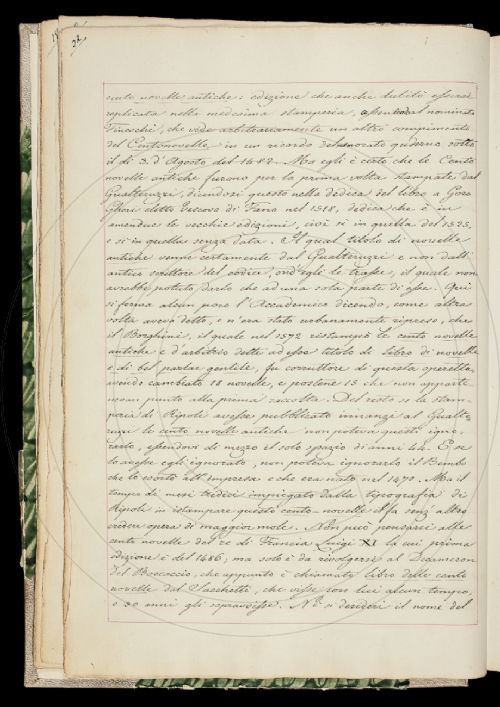 32
cento novelle antiche: edizione che anche dubitò essersi
replicata nella medesima stamperia, al nominato
Fineschi, che vede arbitrariamente un altro compimento
del Centonovelle in un ricordo del sotto
il di 3. d'Agosto del 1482. Ma egli è certo che le Cento
novelle antiche furono per la prima volta stampate dal
Gualteruzzi, dicendosi questo nella dedica del libro a Goro
Gheri eletto Vescovo di Fano nel 1518, dedica che è in
amendue le vecchie edizioni, cioè sì in quella del 1525,
e sì in quella senza data. Il qual titolo di novelle
antiche venne certamente dal Gualteruzzi e non dall'
antico scrittore del codice, ond'egli le trasse, il quale non
avrebbe potuto darlo che ad una sola parte di esse. Qui
si ferma alcun poco l'Accademico dicendo, come altra
volta aveva detto, e n'era stato urbanamente ripreso, che
il Borghini, il quale nel 1572 ristampò le cento novelle
antiche e d'arbitrio dette ad esse titolo di libro di novelle
e di bel parlar gentile, fu corruttore di questa operella,
avendo cambiate 18 novelle, e postene 15 che non apparte-
nevan punto alla prima raccolta. Del resto se la stam-
peria di Ripoli avesse pubblicato innanzi al Gualte-
ruzzi le cento novelle antiche non poteva questi igno-
rarlo, essendovi di mezzo il solo spazio di anni 44. E se
lo avesse egli ignorato, non poteva ignorarlo il Bembo
che lo esortò all'impresa e che era nato nel 1470. Ma il
tempo di mesi tredici impiegato dalla tipografia di
Ripoli in istampare queste cento-novelle il fa senz'altro
credere opera di maggior mole. Non può pensarsi alle
cento novelle del re di Francia Luigi XI la cui prima
edizione è del 1486; ma solo è da rivolgersi al Decameron
del Boccaccio, che appunto è chiamato libro delle cento
novelle dal Sacchetti, che visse con lui alcun tempo,
e 30 anni gli sopravvisse. Nè si desideri il nome del